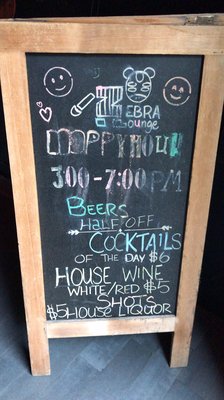 EBRA
Lounge
HAPPY HOUR
3:00-7:00 PM
BEERS
HALF OFF
COCKTAILS
OF THE DAY $6
HOUSE WINE
WHITE/RED $5
SHOTS
$5 HOUSE LIQUOR